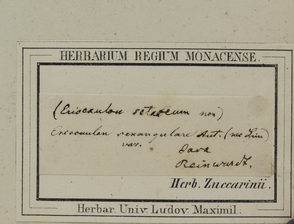 HERBARIUM REGIUM MONACENSE.
(Eriocaulon setaceum nov)
Eriocaulon sexangulare Aut. (nec Linn)
var.
Java
Reinwardt.
Herb. Zuccarinii.
Herbar. Univ. Ludov. Maximil.